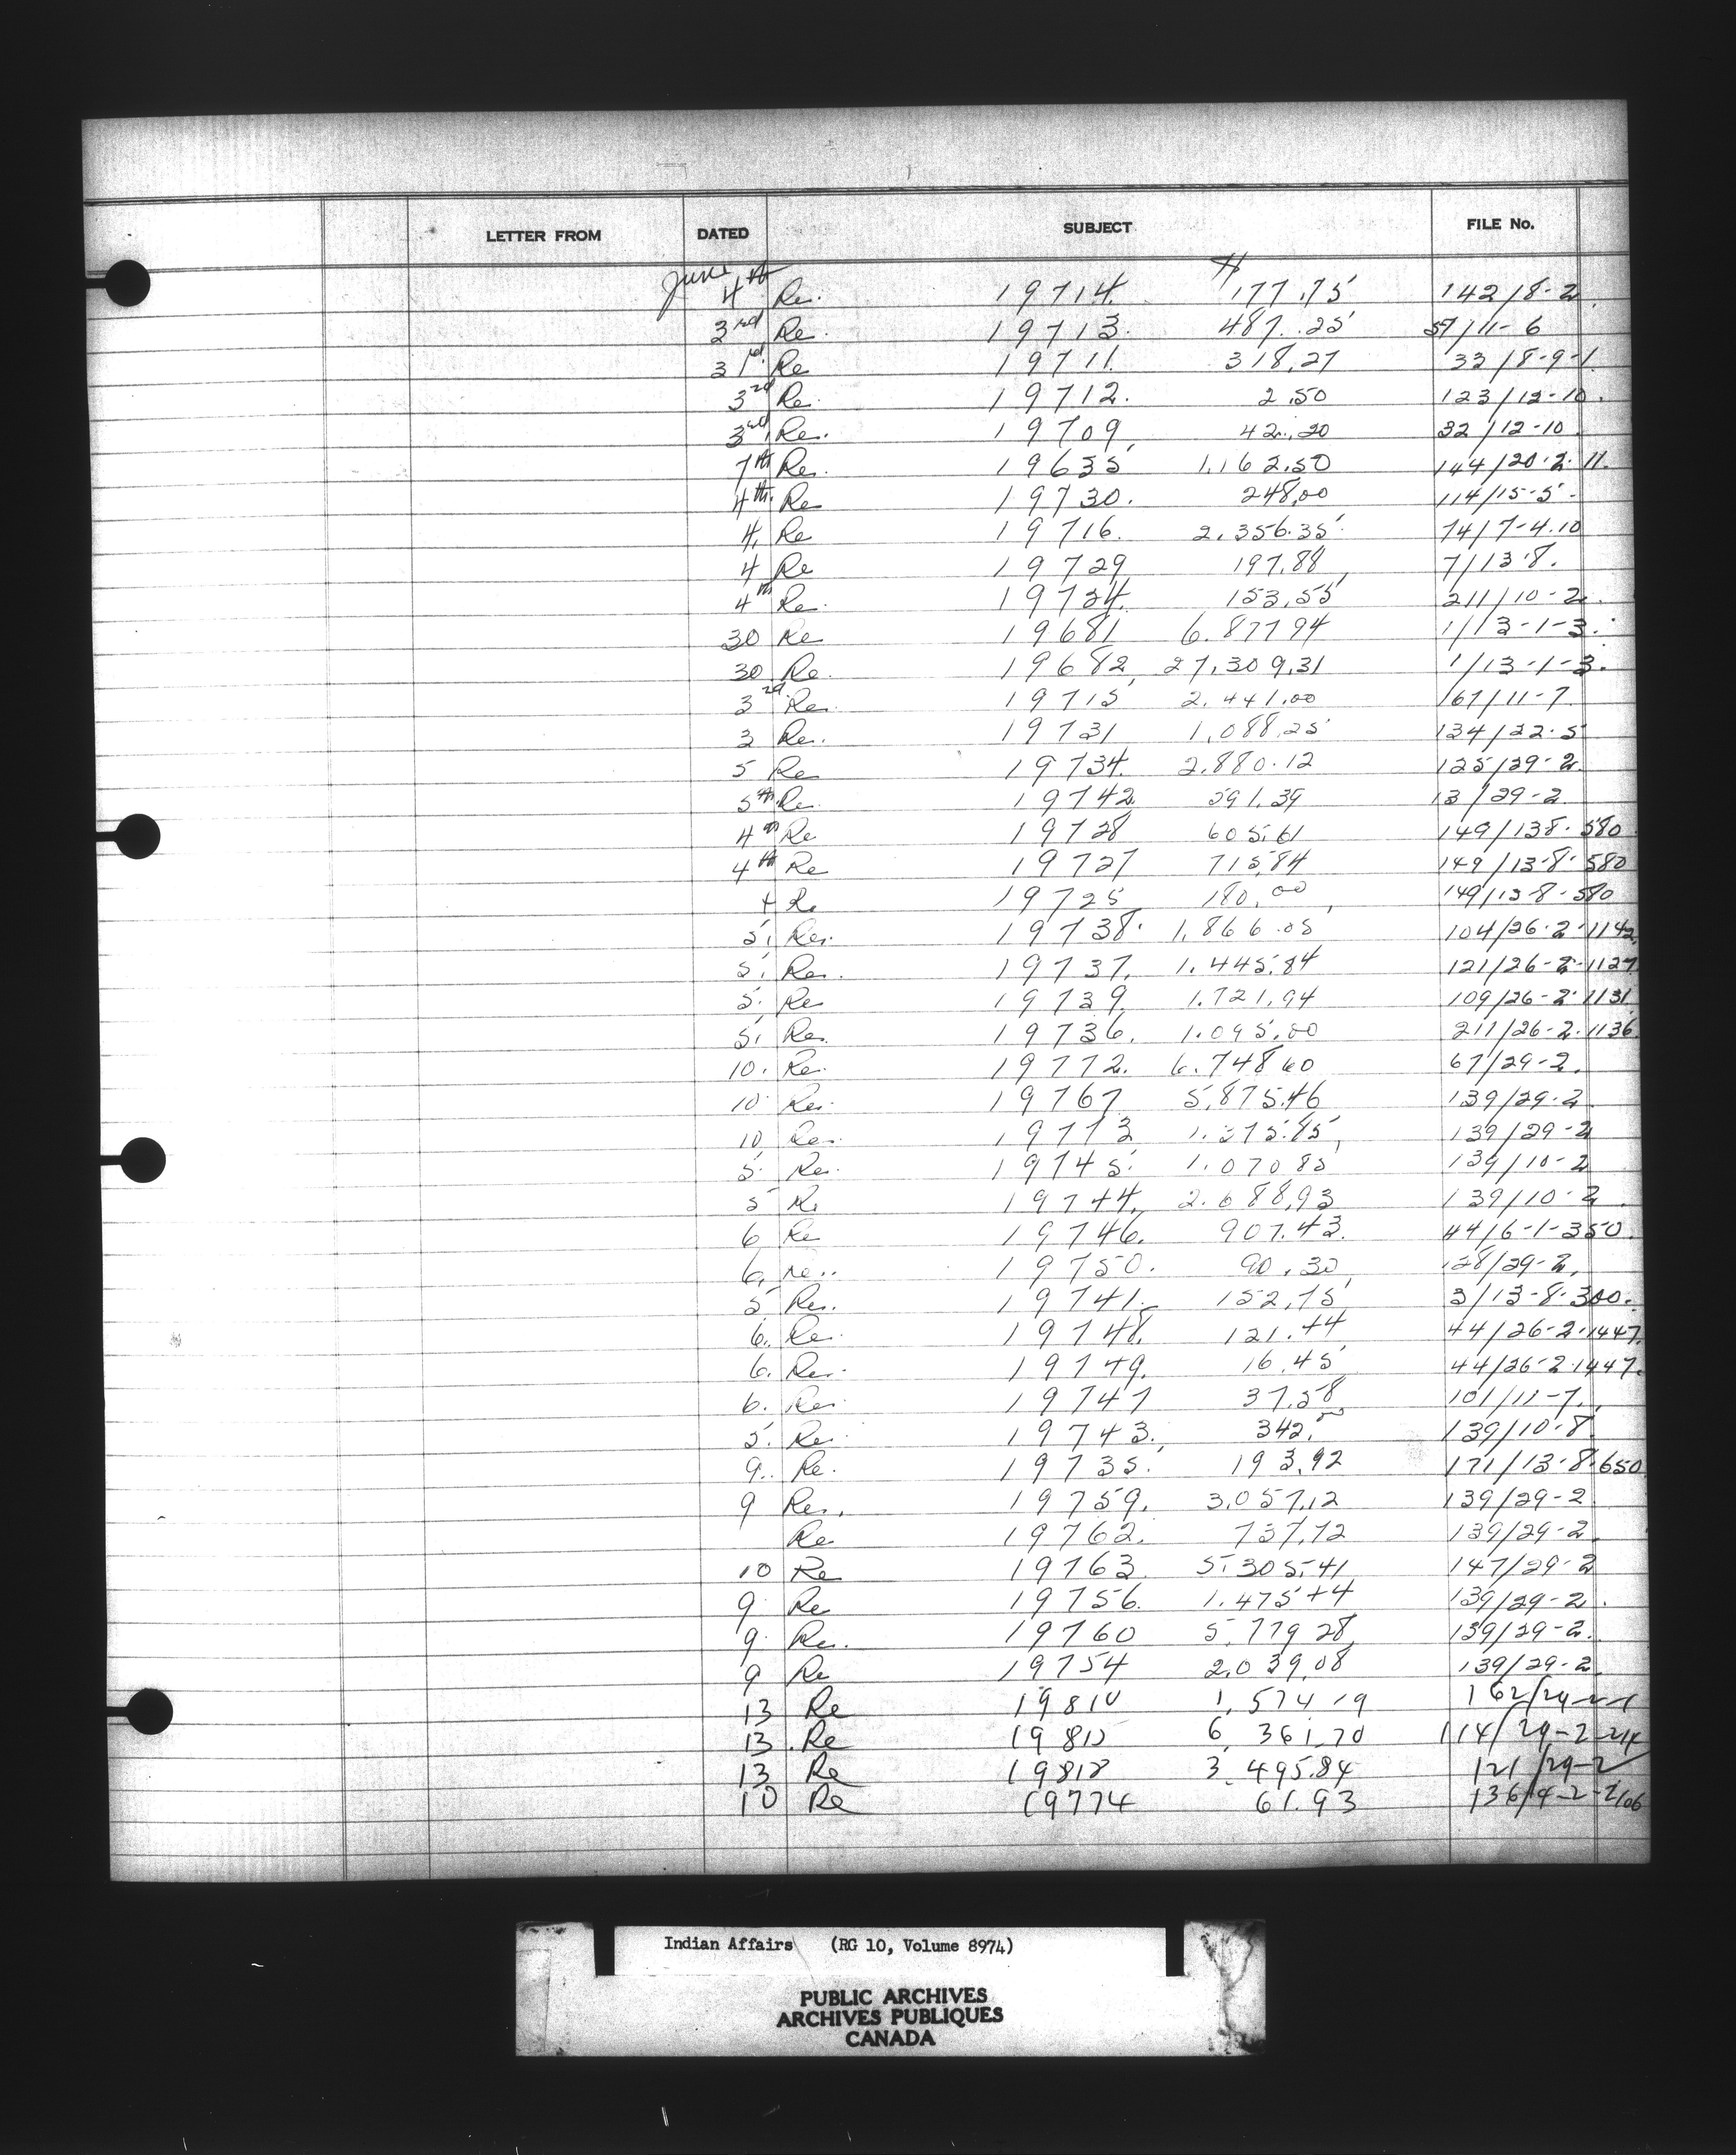 LETTER FROM DATED SUBJECT FILE No.
June $
4th Re. 19714. 177.75 142/8-2.
3rd Re. 19713. 487.25 57/11-6
31st Re 19711. 318.27 33/8-9-1.
3rd Re. 19712. 2.50 123/12-10.
3rd Re. 19709. 42.20 32/12-10.
7th Re. 19635 1,162.50 144/20-2-11.
4th. Re 19730. 248.00 114/15-5-
4. Re 19716. 2,356.35. 74/7-4.10
4 Re 19729 197.88 7/13-8.
4th Re. 19724. 153.55 211/10-2.
30 Re 19681 6.877 94 1/13-1-3.
30 Re. 19682 27,309.31 1/13-1-3.
3rd Re. 19715 2,441.00 167/11-7.
3 Re. 19731 1,088.25 134/22-5
5 Re 19734. 2,880.12 125/29-2.
5th Re. 19742 591.39 13/29-2
4th Re 19728 605.61 149/138-580
4th Re 19727 715.84 149/13-8-580
4 Re 19725 180.00 149/13-8-580
5. Re. 19738. 1,866.05 104/26-2-1142.
5. Re. 19737. 1.445.84 121/26-2-1127
5. Re 19739. 1.721.94 109/26-2-1131.
5. Re. 19736. 1.095.00 211/26-2-1136.
10. Re. 19772. 6.748 60 67/29-2.
10. Re. 19767 5,875.46 139/29-2
10 Re. 19773 139/29-2
5. Re. 19745. 1.070 85 139/10-2
5 Re 19744. 2.688.93 139/10-2.
6 Re 19746. 907.43. 44/6-1-350.
6. Re.. 19750. 90.30 128/29-2.
5 Re. 19741. 152.75 3/13-8-300.
6. Re. 19748. 121.44 44/26-2-1447.
6. Re. 19749. 16.45 44/26-2-1447.
6. Re. 19747 37.58 101/11-7.
5. Re. 19743. 342.00 139/10-8.
9. Re. 19735. 193.92 171/13-8-650
9 Re. 19759. 3,057.12 139/29-2
Re 19762. 737.72 139/29-2.
10 Re 19763. 5.305.41 147/29-2
9. Re 19756. 1.475 44 139/29-2.
9. Re. 19760 5.779 28 139/29-2.
9 Re 19754 2,039.08 139/29-2.
13 Re 19810 1,574 19 162/29-2-1
13. Re 19815 6 361.70 114/29-2-214
13 Re 19818 3,495.84 121/29-2
10 Re 19774 61.93 136/9-2-2106
Indian Affairs (RG 10, Volume 8974)
PUBLIC ARCHIVES
ARCHIVES PUBLIQUES
CANADA